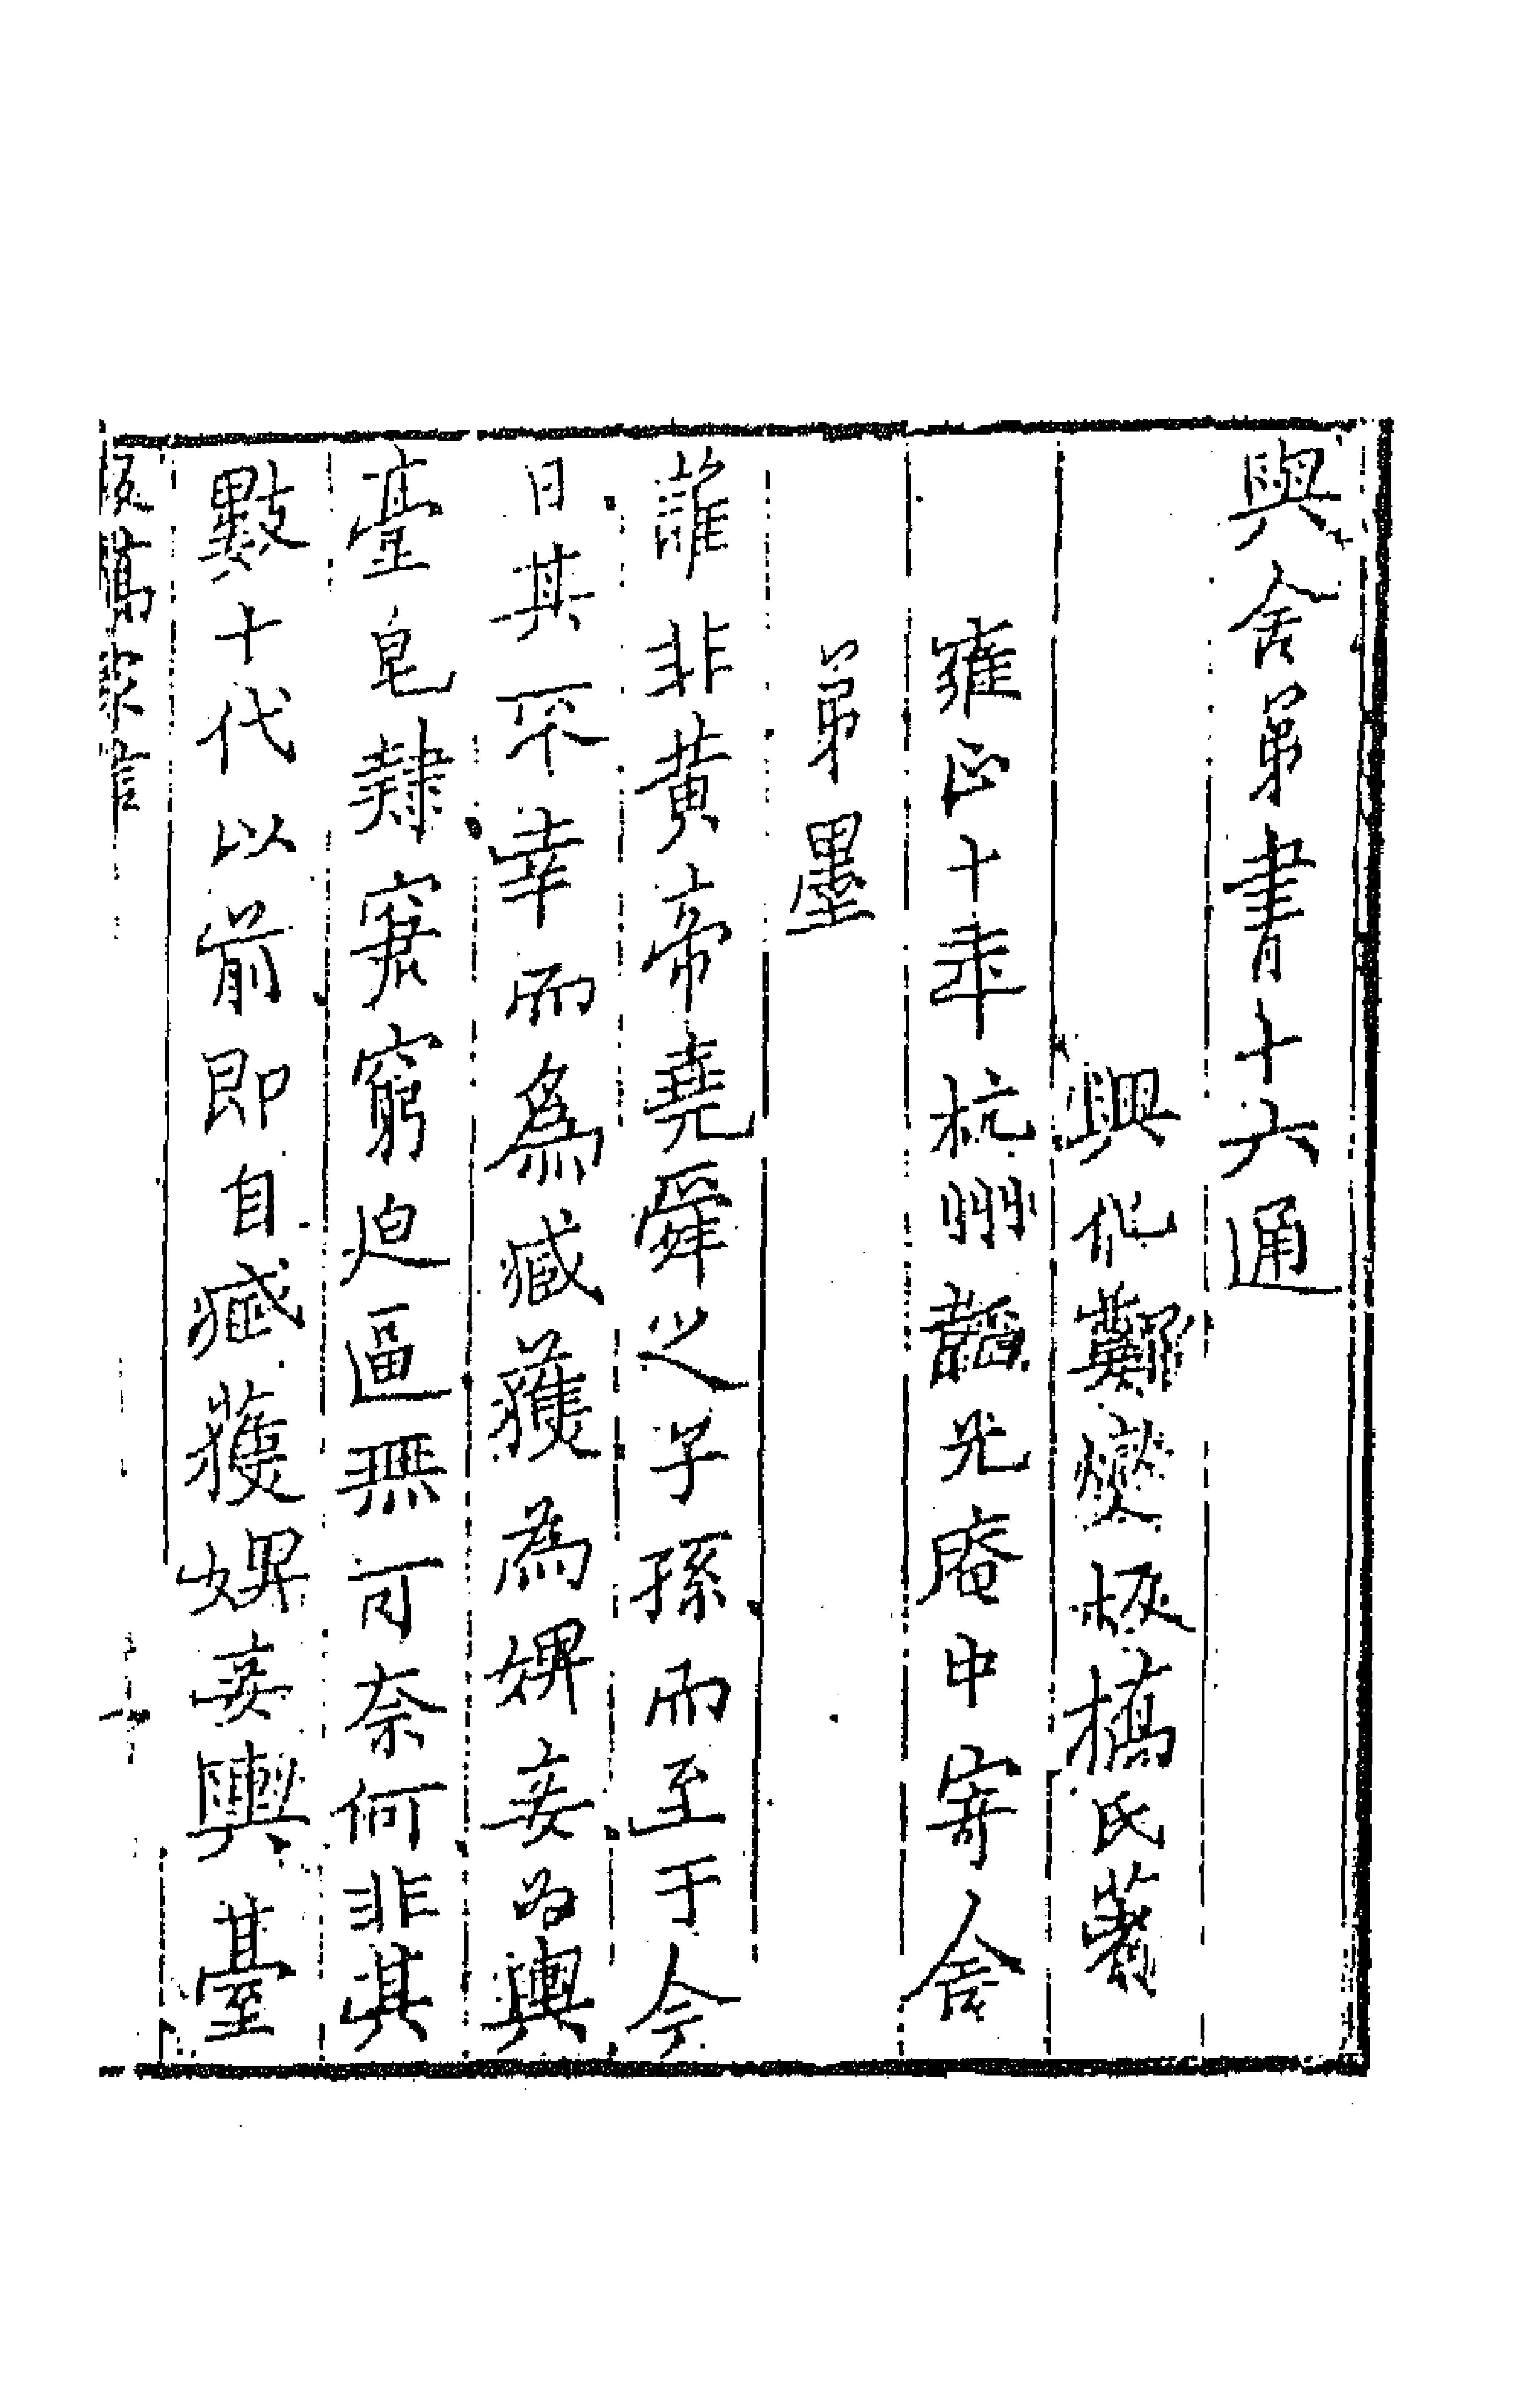 與舍弟書十六通
興化鄭燮板橋氏著
雍正十年杭州韜光庵中寄舍
弟墨
誰非黃帝堯舜之子孫而至于今
日其不幸而為臧獲為婢妾為輿
臺皂隸窘窮迫逼無可奈何非其
數十代以前即自臧獲婢妾輿臺
板橋家信
十